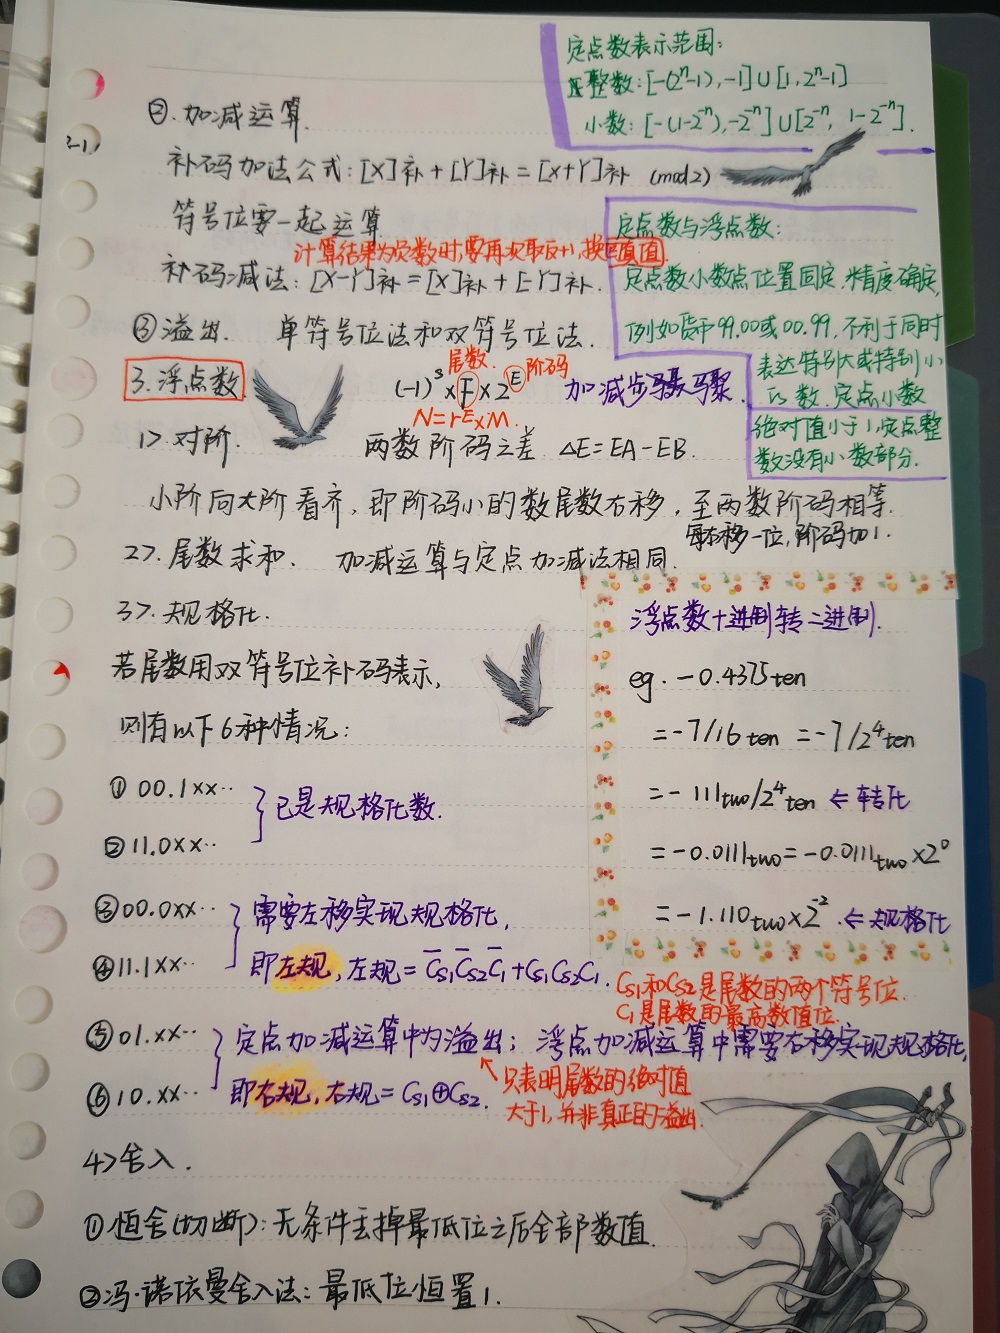 定点数表示范围:
整数: [-(2ⁿ-1), -1]∪[1, 2ⁿ-1]
小数: [-(1-2⁻ⁿ), -2⁻ⁿ]∪[2⁻ⁿ, 1-2⁻ⁿ].
②.加减运算.
补码加法公式: [X]补+[Y]补=[X+Y]补 (mod 2)
符号位要一起运算
计算结果为负数时,要再次取反+1,换回真值
补码减法: [X-Y]补=[X]补+[-Y]补.
③溢出. 单符号位法和双符号位法.
定点数与浮点数:
定点数小数点位置固定,精度确定,
例如货币99.00或00.99,不利于同时
表达特别大或特别小
的数.定点小数
绝对值小于1,定点整
数没有小数部分.
3.浮点数
尾数. 阶码
(-1)ˢ×F×2ᴱ 加减步骤
N=rᴱ×M.
1>.对阶. 两数阶码之差 ΔE=EA-EB.
小阶向大阶看齐,即阶码小的数尾数右移,至两数阶码相等.
每右移一位,阶码加1.
2>.尾数求和. 加减运算与定点加减法相同.
3>.规格化.
若尾数用双符号位补码表示,
则有以下6种情况:
① 00.1××··
② 11.0××··
已是规格化数.
③ 00.0××··
④ 11.1××··
需要左移实现规格化,
即左规,左规=C̅s1C̅s2C̅1+Cs1Cs2C1.
Cs1和Cs2是尾数的两个符号位.
C1是尾数的最高数值位.
⑤ 01.××··
⑥ 10.××··
定点加减运算中为溢出; 浮点加减运算中需要右移实现规格化,
即右规,右规=Cs1⊕Cs2.
只表明尾数的绝对值
大于1,并非真正的溢出.
浮点数十进制转二进制.
eg. -0.4375ten
=-7/16 ten =-7/2⁴ten
=-111two/2⁴ten ←转化
=-0.0111two=-0.0111two×2⁰
=-1.110two×2⁻² ←规格化
4>舍入.
①恒舍(切断):无条件丢掉最低位之后全部数值.
②冯·诺依曼舍入法:最低位恒置1.